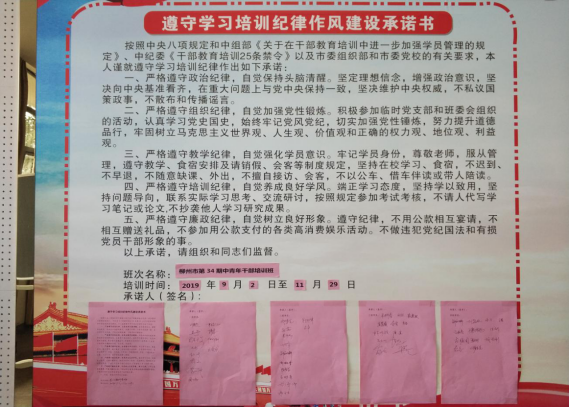 遵守学习培训纪律作风建设承诺书
按照中央八项规定和中组部《关于在干部教育培训中进一步加强学员管理的规
定》、中纪委《干部教育培训25条禁令》以及市委组织部和市委党校的有关要求，本
人谨就遵守学习培训纪律作出如下承诺：
一、严格遵守政治纪律，自觉保持头脑清醒。坚定理想信念，增强政治意识，坚
决向中央基准看齐，在重大问题上与党中央保持一致，坚决维护中央权威，不私议国
策政事，不散布和传播谣言。
二、严格遵守组织纪律，自觉加强党性锻炼。积极参加临时党支部和班委会组织
的活动，认真学习党史国史，始终牢记党风党纪，切实加强党性锤炼，努力提升道德
品行，牢固树立马克思主义世界观、人生观、价值观和正确的权力观、地位观、利益
观。
三、严格遵守教学纪律，自觉强化学员意识。牢记学员身份，尊敬老师，服从管
理，遵守教学、食宿安排及请销假、会客等制度规定，坚持在校学习、食宿，不迟到、
不早退，不随意缺课、外出，不擅自接访、会客，不以公车、借车伴读或带人陪读。
四、严格遵守培训纪律，自觉养成良好学风。端正学习态度，坚持学以致用，坚
持问题导向，联系实际学习思考、交流研讨，按照规定参加考试考核，不请人代写学
习笔记或论文，不抄袭他人学习研究成果。
五、严格遵守廉政纪律，自觉树立良好形象。遵守纪律，不用公款相互宴请，不
相互赠送礼品，不参加用公款支付的各类高消费娱乐活动。不做违犯党纪国法和有损
党员干部形象的事。
以上承诺，请组织和同志们监督。
班次名称：柳州市第34期中青年干部培训班
培训时间：2019年9月2日至11月29日
承诺人（签名）：